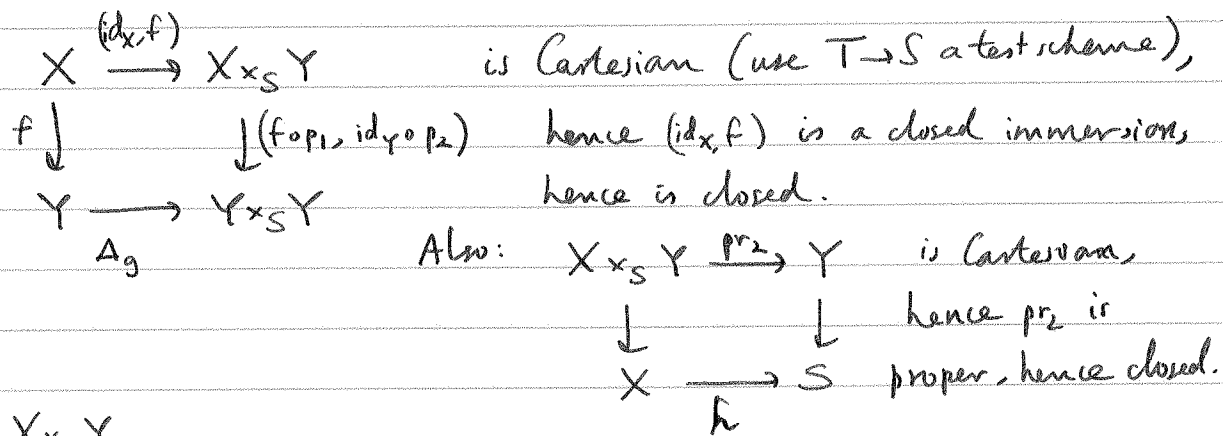 X $\xrightarrow{(id_X, f)}$ X ×_S Y is Cartesian (use T→S a test scheme),
f ↓ ↓ (f∘p₁, id_Y∘p₂) hence (id_X, f) is a closed immersion,
Y $\xrightarrow[\Delta_g]{}$ Y×_S Y hence is closed.
Also: X ×_S Y $\xrightarrow{pr_2}$ Y is Cartesian,
↓ ↓ hence pr₂ is
X $\xrightarrow[h]{}$ S proper, hence closed.
X ×_S Y